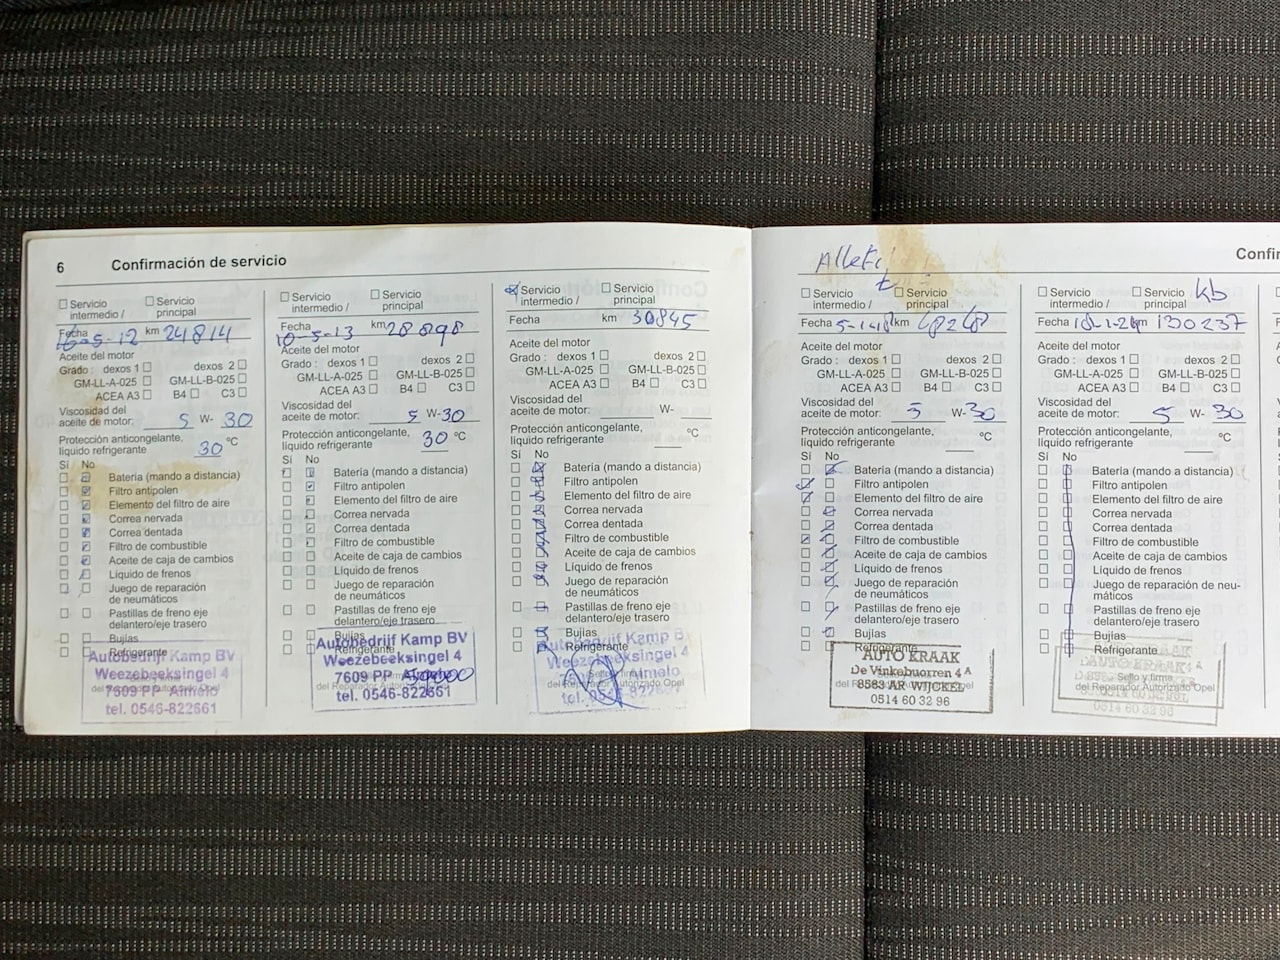 6 Confirmación de servicio
Servicio intermedio /
Servicio principal
Fecha -5-12 km 24814
Aceite del motor
Grado : dexos 1 dexos 2
GM-LL-A-025 GM-LL-B-025
ACEA A3 B4 C3
Viscosidad del
aceite de motor: 5 W-30
Protección anticongelante,
líquido refrigerante 30 °C
Sí No
Batería (mando a distancia)
Filtro antipolen
Elemento del filtro de aire
Correa nervada
Correa dentada
Filtro de combustible
Aceite de caja de cambios
Líquido de frenos
Juego de reparación
de neumáticos
Pastillas de freno eje
delantero/eje trasero
Bujías
Refrigerante
Autobedrijf Kamp BV
Weezebeeksingel 4
7609 PP Almelo
del Reparador Autorizado Opel
tel. 0546-822661
Servicio intermedio /
Servicio principal
Fecha 10-5-13 km 28898
Aceite del motor
Grado : dexos 1 dexos 2
GM-LL-A-025 GM-LL-B-025
ACEA A3 B4 C3
Viscosidad del
aceite de motor: 5 W-30
Protección anticongelante,
líquido refrigerante 30 °C
Sí No
Batería (mando a distancia)
Filtro antipolen
Elemento del filtro de aire
Correa nervada
Correa dentada
Filtro de combustible
Aceite de caja de cambios
Líquido de frenos
Juego de reparación
de neumáticos
Pastillas de freno eje
delantero/eje trasero
Bujías
Refrigerante
Autobedrijf Kamp BV
Weezebeeksingel 4
7609 PP
del Reparador Autorizado Opel
tel. 0546-822661
Servicio intermedio /
Servicio principal
Fecha km 30845
Aceite del motor
Grado : dexos 1 dexos 2
GM-LL-A-025 GM-LL-B-025
ACEA A3 B4 C3
Viscosidad del
aceite de motor: W-
Protección anticongelante,
líquido refrigerante °C
Sí No
Batería (mando a distancia)
Filtro antipolen
Elemento del filtro de aire
Correa nervada
Correa dentada
Filtro de combustible
Aceite de caja de cambios
Líquido de frenos
Juego de reparación
de neumáticos
Pastillas de freno eje
delantero/eje trasero
Bujías
Refrigerante
Autobedrijf Kamp B
Weezebeeksingel 4
Almelo
del Reparador Autorizado Opel
Confir
Servicio intermedio /
Servicio principal
Fecha 5-1-18 km 68268
Aceite del motor
Grado : dexos 1 dexos 2
GM-LL-A-025 GM-LL-B-025
ACEA A3 B4 C3
Viscosidad del
aceite de motor: 5 W-30
Protección anticongelante,
líquido refrigerante °C
Sí No
Batería (mando a distancia)
Filtro antipolen
Elemento del filtro de aire
Correa nervada
Correa dentada
Filtro de combustible
Aceite de caja de cambios
Líquido de frenos
Juego de reparación
de neumáticos
Pastillas de freno eje
delantero/eje trasero
Bujías
Refrigerante
AUTO KRAAK
De Vinkebuorren 4 A
8563 AR WIJCKEL
0514 60 32 96
kb
Servicio intermedio /
Servicio principal
Fecha km 130237
Aceite del motor
Grado : dexos 1 dexos 2
GM-LL-A-025 GM-LL-B-025
ACEA A3 B4 C3
Viscosidad del
aceite de motor: 5 W-30
Protección anticongelante,
líquido refrigerante °C
Sí No
Batería (mando a distancia)
Filtro antipolen
Elemento del filtro de aire
Correa nervada
Correa dentada
Filtro de combustible
Aceite de caja de cambios
Líquido de frenos
Juego de reparación de neu-
máticos
Pastillas de freno eje
delantero/eje trasero
Bujías
Refrigerante
Sello y firma
del Reparador Autorizado Opel
0514 60 32 96